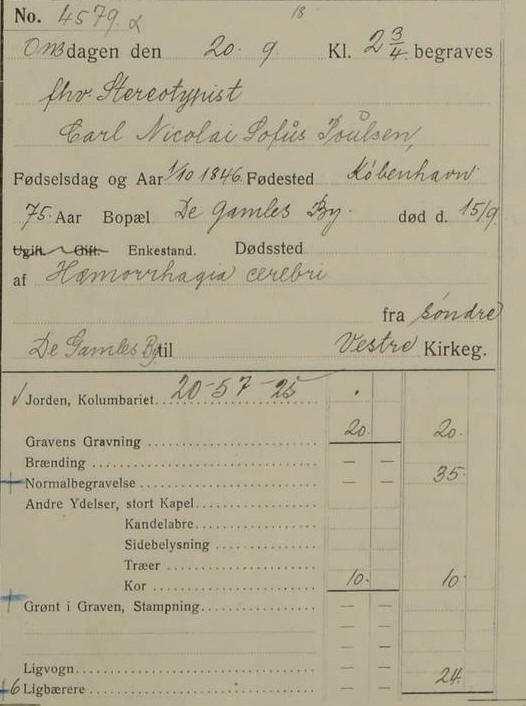 No. 4579 α 18
Onsdagen den 20. 9. Kl. 2 3/4. begraves
fhv. Stereotypist
Carl Nicolai Sofus Poulsen,
Fødselsdag og Aar 1/10 1846. Fødested København.
75. Aar Bopæl De Gamles By. død d. 15/9
Ugift. Gift. Enkestand. Dødssted
af Hæmorrhagia cerebri
fra søndre
De Gamles By til Vestre Kirkeg.
√ Jorden, Kolumbariet 20-57-25
Gravens Gravning 20. 20.
Brænding — —
+ Normalbegravelse — — 35.
Andre Ydelser, stort Kapel
Kandelabre
Sidebelysning
Træer
Kor 10. 10.
+ Grønt i Graven, Stampning — —
— —
— —
Ligvogn — — 24.
+ 6 Ligbærere — —